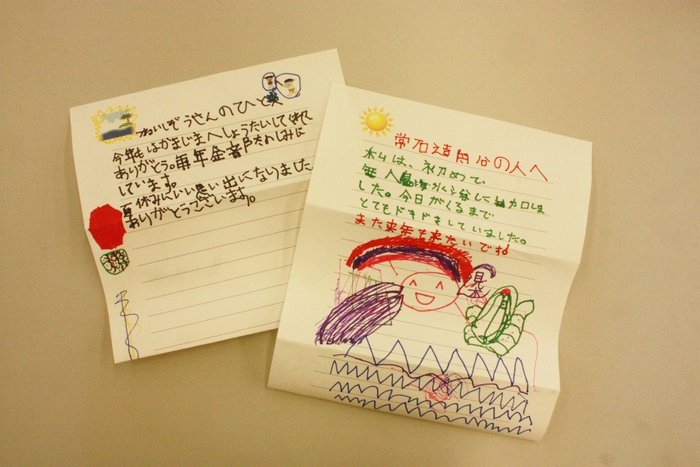 つねいしぞうせんのひとへ
今年もはかまじまへしょうたいしてくれて
ありがとう。毎年金音戸たのしみに
しています。
夏休みにいい思い出になりました
ありがとうございます。
常石造船の人へ
私は、初めて
無人島海水浴に参加しま
した。今日がくるまで
とてもドキドキしていました。
また来年も来たいです。